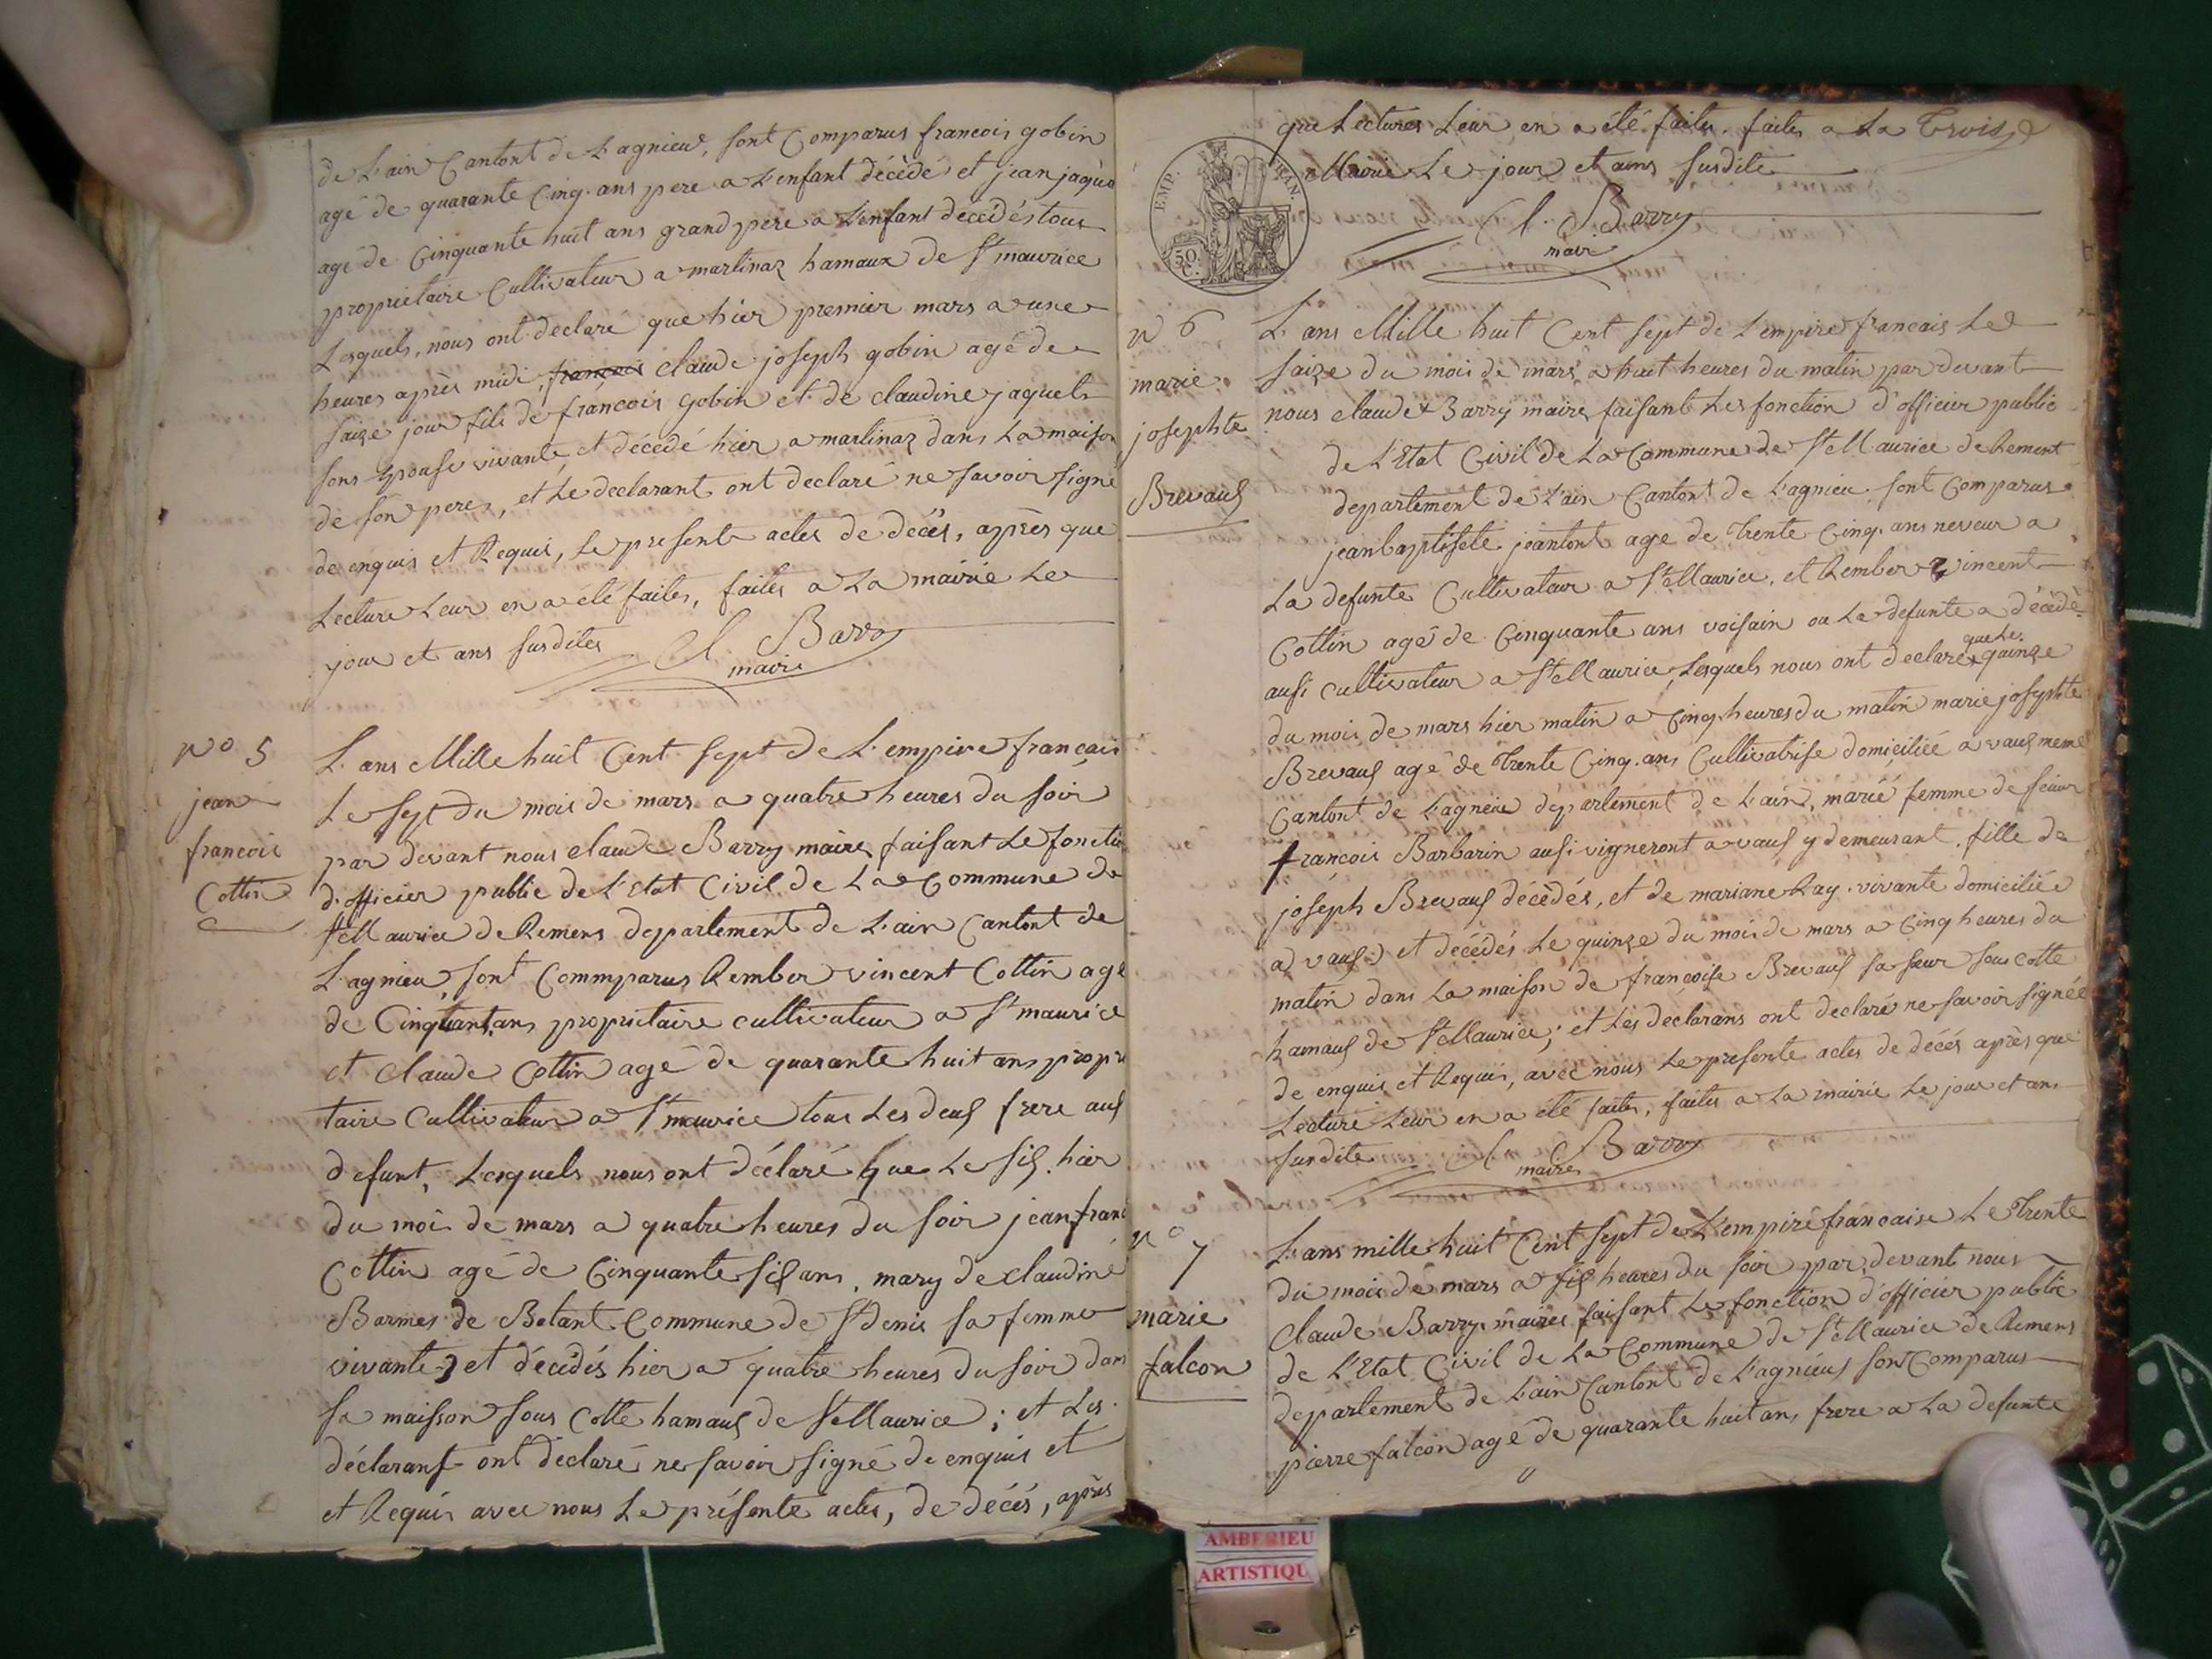 de L'ain Cantont de Lagnieu, sont Comparus francois gobin
agé de quarante Cinq ans pere a L'enfant décédé et jean jaques
agé de Cinquante huit ans grand pere a L'enfant décédés tous
proprietaire Cultivateur a martinaz hamaux de St maurice
Lesquels, nous ont declaré que hier premier mars a une
heures après midi, françois claude joseph gobin agé de
saize jour fils de francois gobin et de claudine jaquet
sons Epouse vivante, et décédé hier a martinaz dans La maison
de son pere, et Le declarant ont declaré ne savoir signé
de enquis et Requis, Le presente actes de décès, après que
Lecture Leur en a été faites, faites a La mairie Le
jour et ans susdites Cl. Barry
maire
no 5
jean
francois
Cottin
L'ans Mille huit Cent Sept de L'empire français
Le Sept Du mois de mars a quatre heures du soir
par devant nous claude Barry maire faisant Le fonction
d'officier public de L'Etat Civil de La Commune de
St Maurice de Remens departement de L'ain Cantont de
Lagnieu, sont Commparus Rember vincent Cottin agé
de Cinquant ans proprietaire cultivateur a St maurice
et claude Cottin agé de quarante huit ans propri
taire Cultivateur a St maurice tous Les deux frere aux
defunt, Lesquels nous ont déclaré que Le six hier
du mois de mars a quatre heures du soir jean franc
Cottin agé de Cinquante six ans, mary de claudine
Barmes de Botant Commune de St denis sa femme
vivante, et décédés hier a quatre heures du soir dans
sa maisson sous Cotte hamaux de St Maurice ; et Les
déclarans ont déclaré ne savoir signé de enquis et
et Requis avec nous Le présente actes, de décés, après
EMP. FRAN.
50 C.
que Lectures Leur en a été faites. faites a La
Mairie Le jour et ans susdite
Cl. Barry
maire
n 6
marie
josephte
Brevaux
L'ans Mille huit Cent sept de L'empire francais Le
saize du mois de mars a huit heures du matin par devant
nous claude Barry maire faisant Les fonction d'officier public
de L'Etat Civil de La Commune de St Maurice de Rement
departement de L'ain Cantont de Lagnieu sont Comparus
jean baptisete joantont age de Trente Cinq ans neveur a
La defunte Cultivateur a St Maurice, et Rember vincent
Cottin agé de Cinquante ans voisain ou La defunte a décédé
ausi cultivateur a St Maurice, Lesquels nous ont declare que Le quinze
du mois de mars hier matin a Cinq heures du matin marie josephte
Brevaux agé de Trente Cinq ans Cultivatrise domiciliée a vaux meme
Cantont de Lagnieu département de L'ain, mariée femme de feiur
françois Barbarin ausi vigneront a vaux y demeurant. fille de
joseph Brevaux décédés, et de mariane Ray vivante domiciliée
a vaux et decédés Le quinze du mois de mars a Cinq heures du
matin dans La maison de françoise Brevaux sa sœur sous Cotte
hamaux de St Maurice ; et Les declarans ont declaré ne savoir signée
de enquis et Requis, avec nous Le presente actes de décés après que
Lecture Leur en a été faites, faites a La mairie Le jour et ans
susdite Cl Barry
maire
no 7
marie
falcon
L'ans mille huit Cent Sept de L'empire française Le Trente
du mois de mars a six heures du soir par devant nous
Claude Barry maires faisant Les fonction d'officier public
de L'Etat Civil de La Commune de St Maurice de Remens
departement de L'ain Cantont de Lagnieus sont Comparus
pierre falcon agé de quarante huit ans frere a La defunte
AMBERIEU
ARTISTIQU